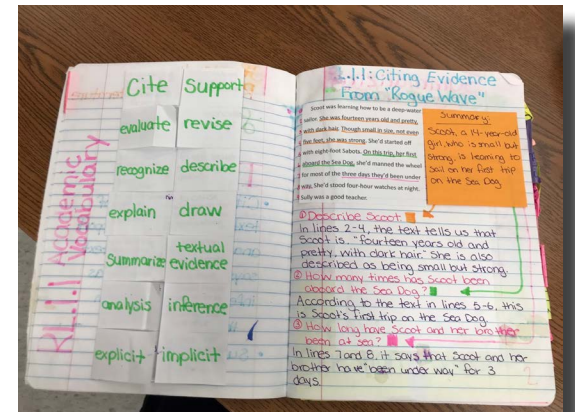 RL.1.1 Academic
Vocabulary
Cite Support
evaluate revise
recognize describe
explain draw
summarize textual evidence
analysis inference
explicit implicit
L.1.1: Citing Evidence
From "Rogue Wave"
Scoot was learning how to be a deep-water
sailor. She was fourteen years old and pretty,
with dark hair. Though small in size, not even
five feet, she was strong. She'd started off
with eight-foot Sabots. On this trip, her first
aboard the Sea Dog, she'd manned the wheel
for most of the three days they'd been under
way. She'd stood four-hour watches at night.
Sully was a good teacher.
Summary:
Scoot, a 14-year-old
girl, who is small but
strong, is learning to
sail on her first trip
on the Sea Dog
① Describe Scoot
In lines 2-4, the text tells us that
Scoot is "fourteen years old and
pretty, with dark hair." She is also
described as being small but strong.
② How many times has Scoot been
aboard the Sea Dog?
According to the text in lines 5-6, this
is Scoot's first trip on the Sea Dog.
③ How long have Scoot and her brother
been at sea?
In lines 7 and 8, it says that Scoot and her
brother have "been under way" for 3
days.